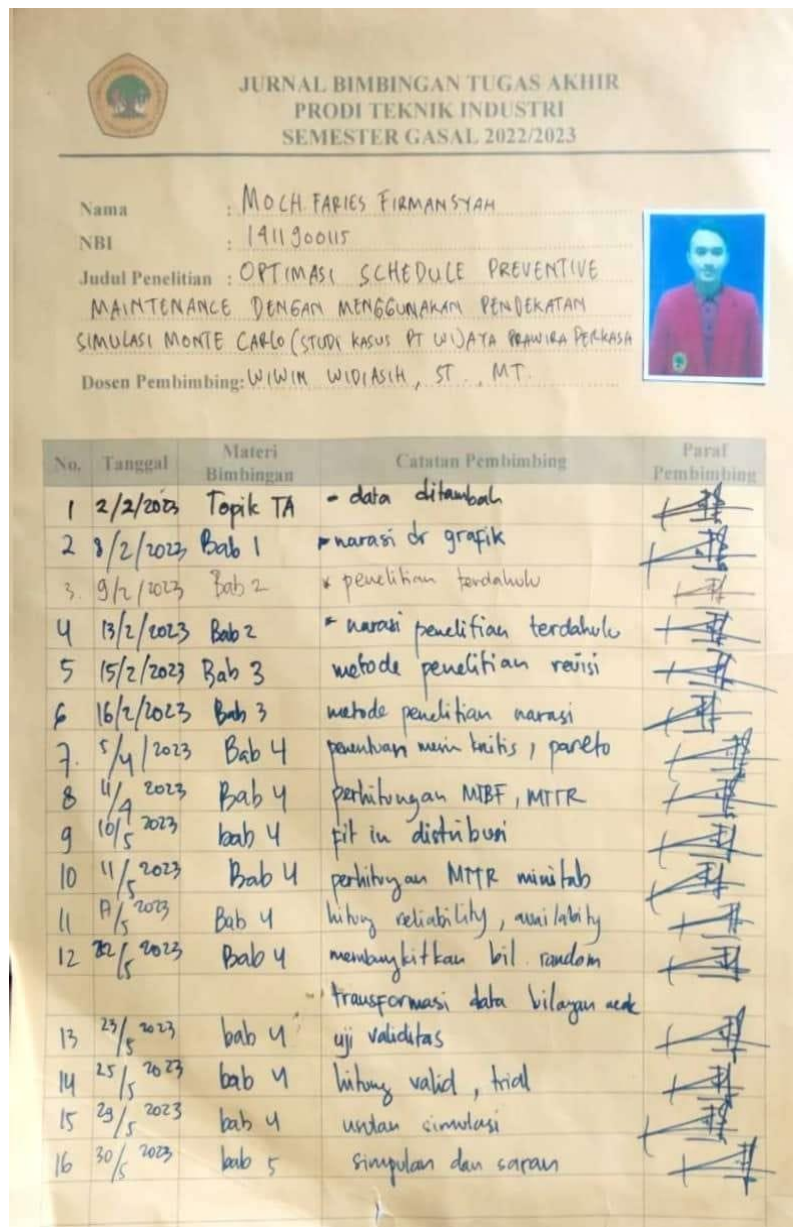 JURNAL BIMBINGAN TUGAS AKHIR
PRODI TEKNIK INDUSTRI
SEMESTER GASAL 2022/2023
Nama : MOCH. FARIES FIRMANSYAH
NBI : 1411900115
Judul Penelitian : OPTIMASI SCHEDULE PREVENTIVE
MAINTENANCE DENGAN MENGGUNAKAN PENDEKATAN
SIMULASI MONTE CARLO (STUDI KASUS PT WIJAYA PRAWIRA PERKASA
Dosen Pembimbing: WIWIN WIDIASIH, ST., MT.
No. Tanggal Materi Bimbingan Catatan Pembimbing Paraf Pembimbing
1 2/2/2023 Topik TA - data ditambah
2 8/2/2023 Bab 1 narasi dr grafik
3. 9/2/2023 Bab 2 * penelitian terdahulu
4 13/2/2023 Bab 2 * narasi penelitian terdahulu
5 15/2/2023 Bab 3 metode penelitian revisi
6 16/2/2023 Bab 3 metode penelitian narasi
7. 5/4/2023 Bab 4 penentuan mesin kritis, pareto
8 11/4 2023 Bab 4 perhitungan MTBF, MTTR
9 10/5 2023 bab 4 fit in distribusi
10 11/5 2023 Bab 4 perhitungan MTTR minitab
11 17/5 2023 Bab 4 hitung reliability, availabity
12 22/5 2023 Bab 4 membangkitkan bil. random
transformasi data bilangan acak
13 23/5 2023 bab 4 uji validitas
14 25/5 2023 bab 4 hitung valid, trial
15 29/5 2023 bab 4 simulasi
16 30/5 2023 bab 5 simpulan dan saran